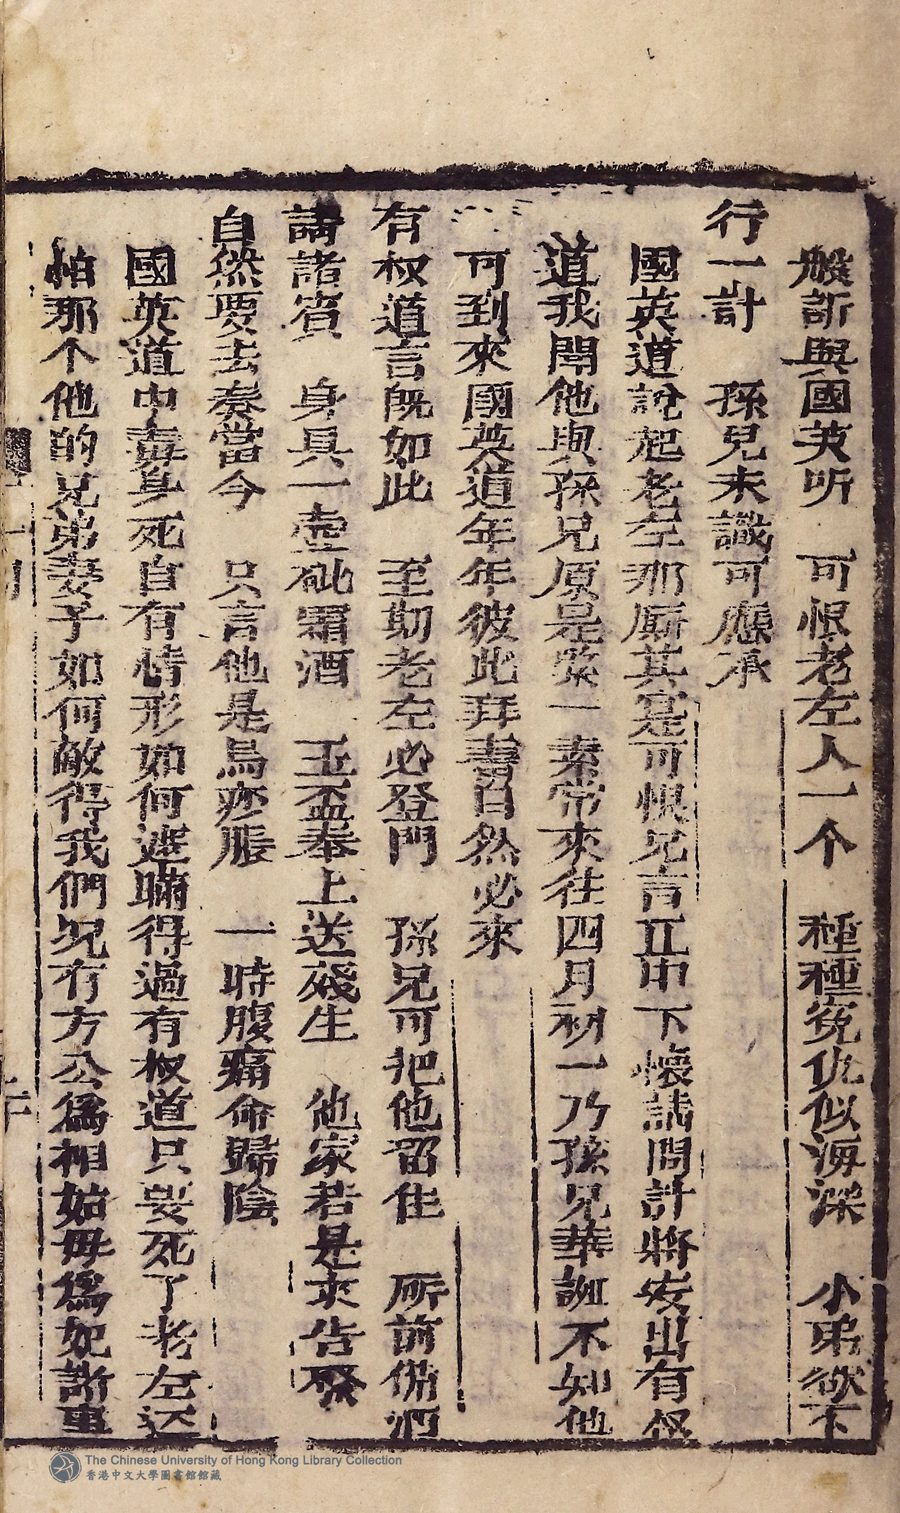 般訴與國英听　可恨老左人一个　種種寃仇似海深　小弟欲下
行一計　孫兄未識可應承
國英道說起老左那厮其寔可恨兄言正中下懷請問計將安出有叔
道我聞他與孫兄原是世素常來往四月初一乃孫兄華誕不知他
可到來國英道年年彼此拜壽自然必來
有叔道言既如此　至期老左必登門　孫兄可把他留住　所前俻酒
請諸賓　身具一壺砒霜酒　玉盃奉上送殘生　他家若是來告發
自然要去奏當今　只言他是烏痧脹　一時腹痛命歸陰
國英道中毒身死自有情形如何遮瞞得過有叔道只要死了老左还
怕那个他的兄弟妻子如何敵得我們况有方公為相姑母為妃訴事
The Chinese University of Hong Kong Library Collection
香港中文大學圖書館館藏